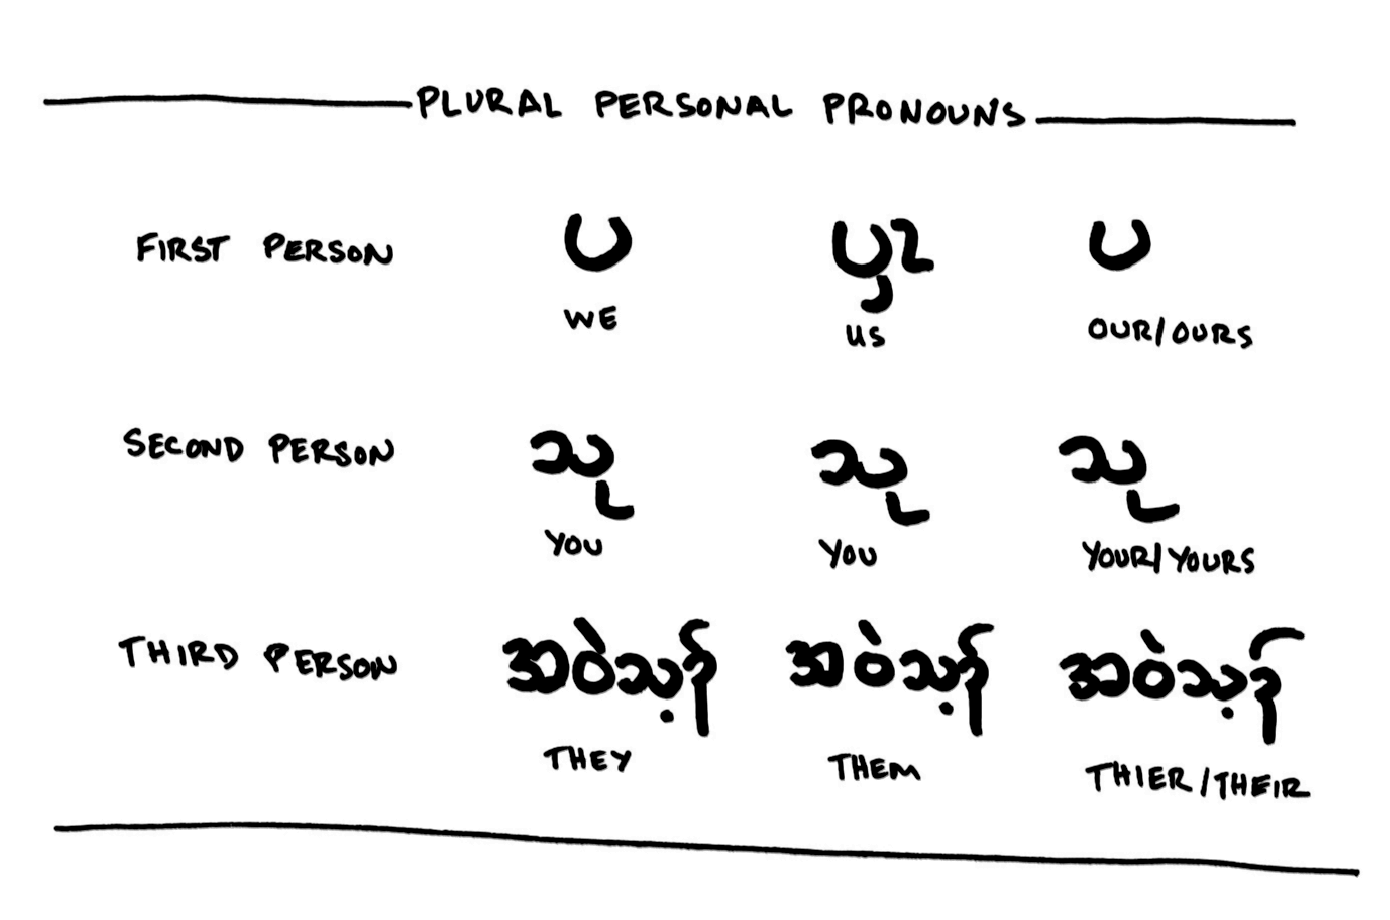 PLURAL PERSONAL PRONOUNS
FIRST PERSON ပ ပှၤ ပ
WE US OUR/OURS
SECOND PERSON သု သု သု
YOU YOU YOUR/YOURS
THIRD PERSON အဝဲသ့ၣ် အဝဲသ့ၣ် အဝဲသ့ၣ်
THEY THEM THIER/THEIR